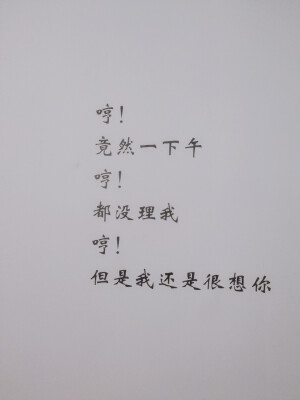 哼!
竟然一下午
哼!
都没理我
哼!
但是我还是很想你